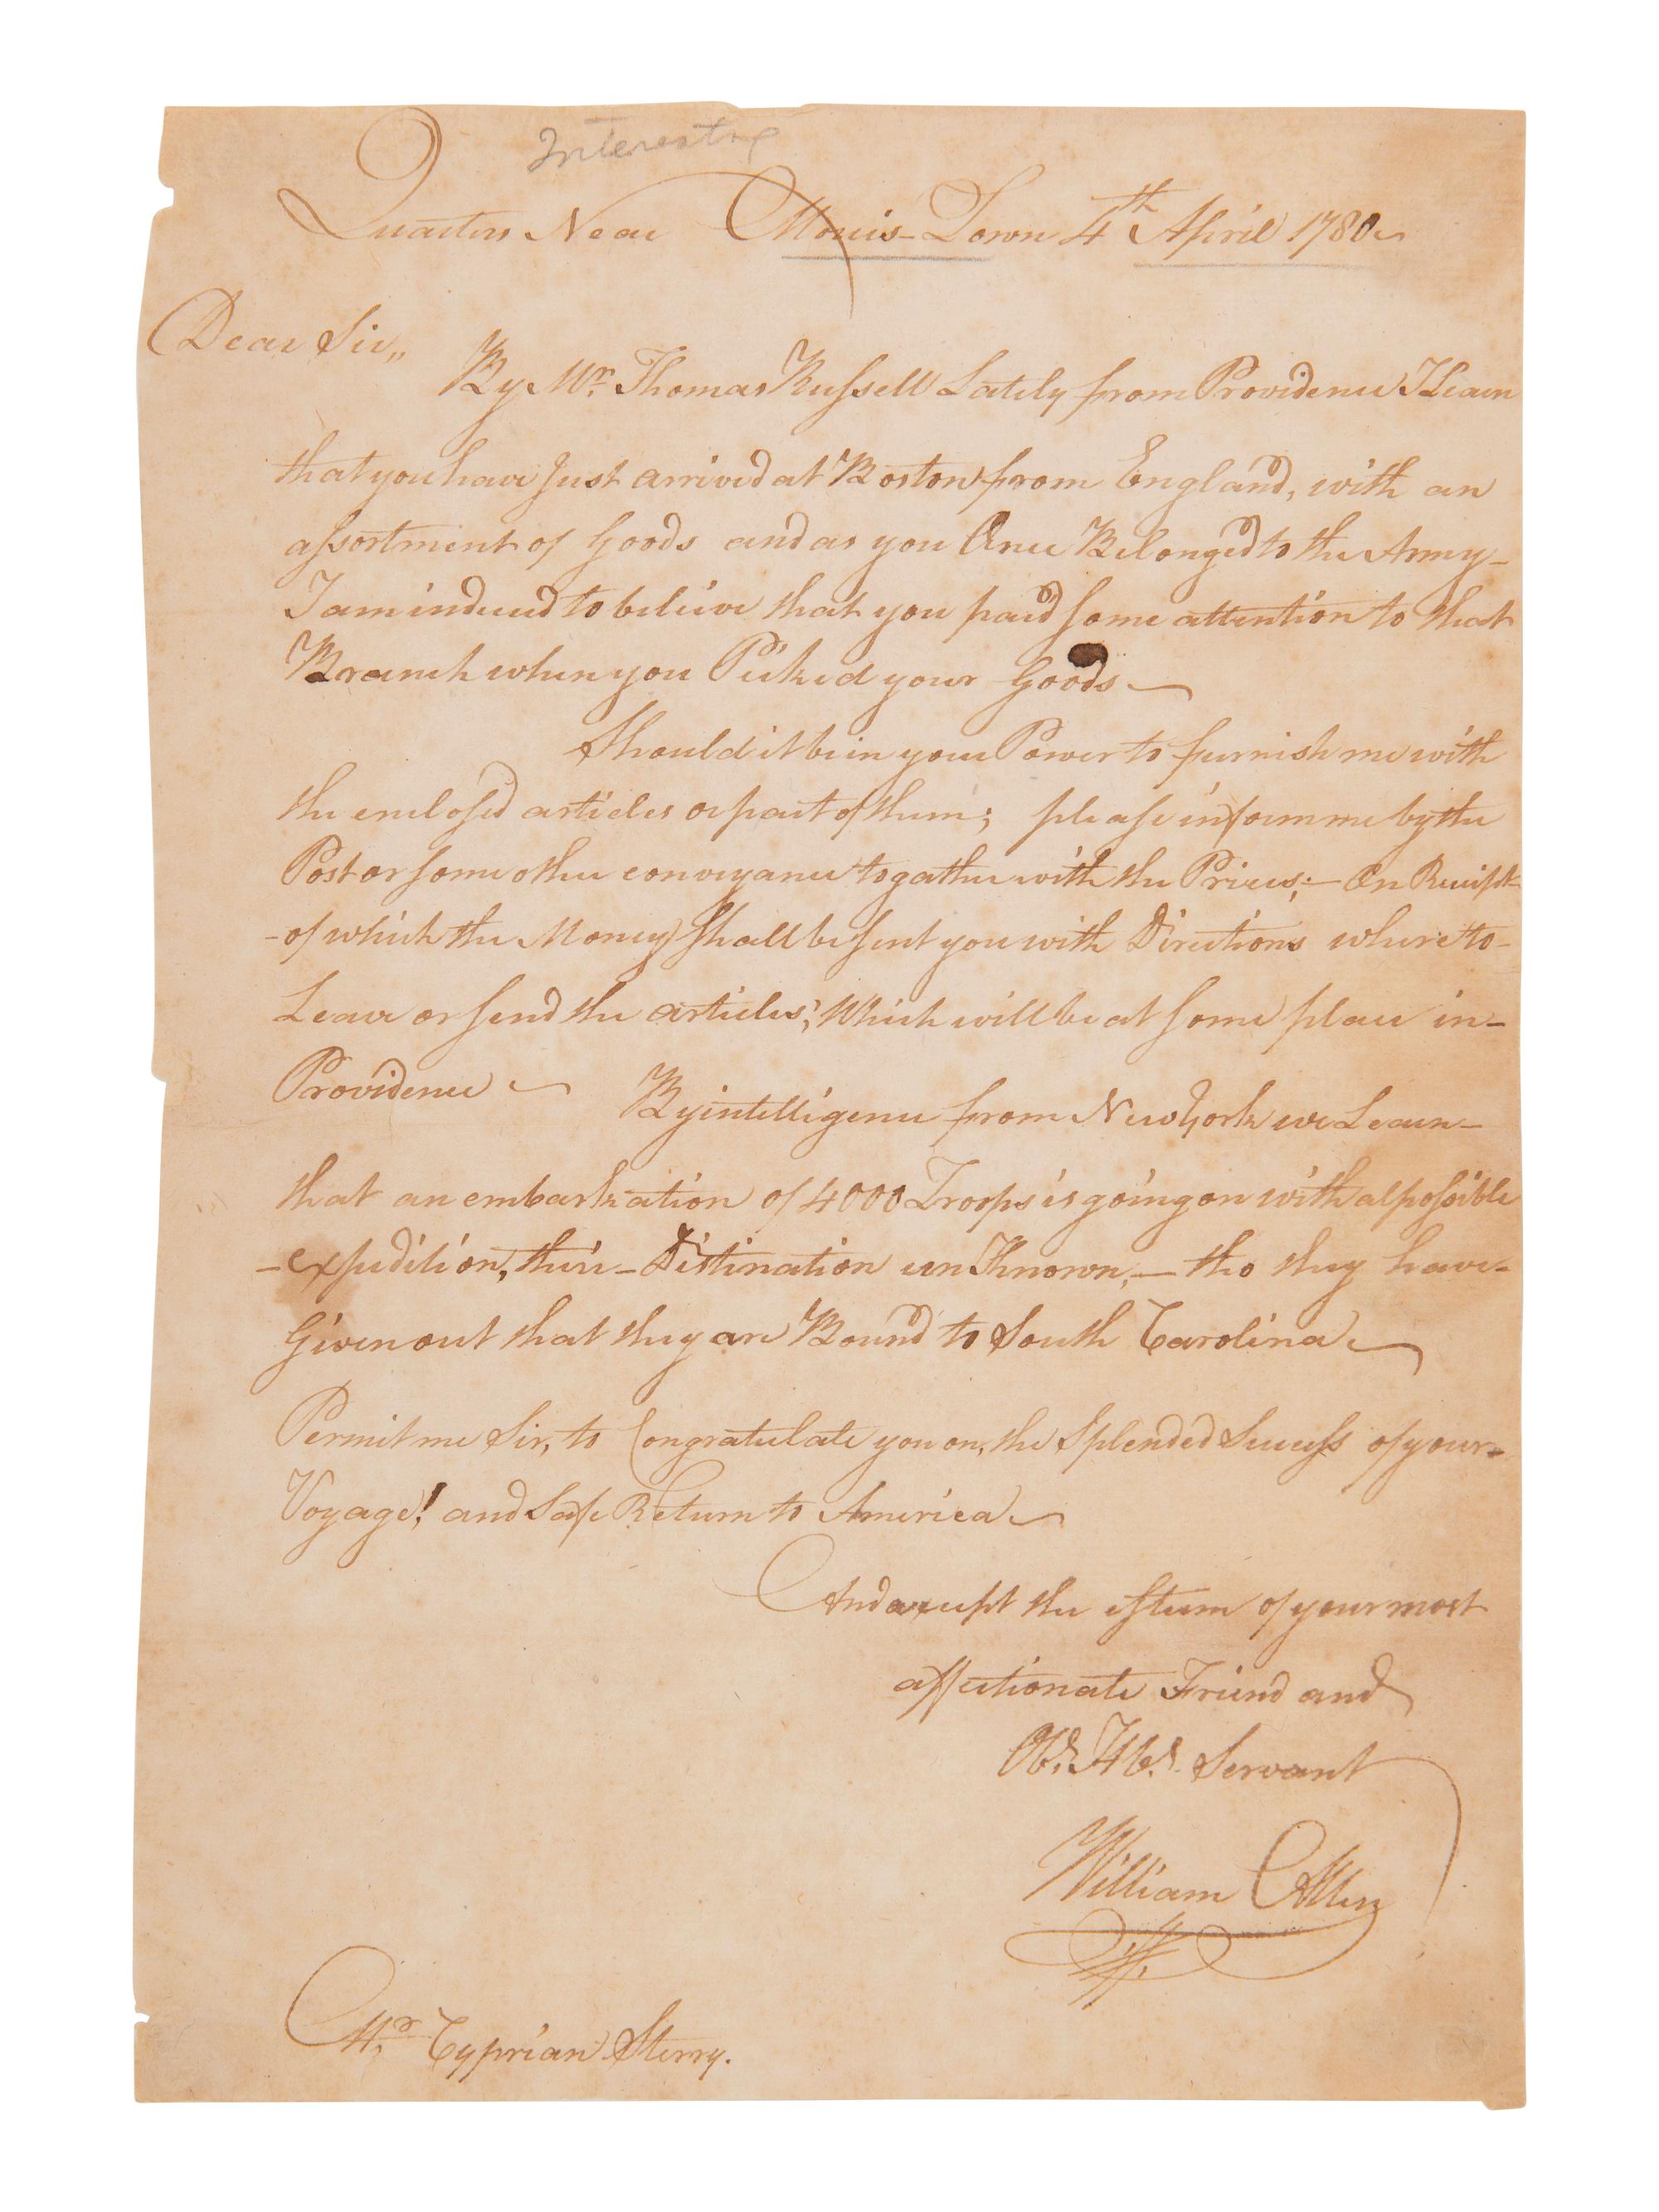 Interesting
Quarters Near Morris-Town 4th April 1780
Dear Sir,,
By Mr. Thomas Russell Lately from Providence I Learn
that you have Just arrived at Boston from England, with an
assortment of Goods and as you Once Belonged to the Army-
I am induced to believe that you paid some attention to that
Branch when you Picked your Goods —
Should it be in your Power to furnish me with
the enclosed articles or part of them; please inform me by the
Post or some other conveyance togather with the Prices; — On Receipt
-of which the Money Shall be sent you with Directions where to-
Leave or send the articles; Which will be at some place in-
Providence —
By intelligence from New York we Learn-
that an embarkation of 4000 Troops is going on with al possible
-expedition, their-Distination unKnown, — tho they have-
Given out that they are Bound to South Carolina —
Permit me Sir, to Congratulate you on, the Splended Success of your-
Voyage! and Safe Return to America —
And accept the esteem of your most
affectionate Friend and
Obt. Hbl. Servant
William Allen
Mr. Cyprian Sterry.